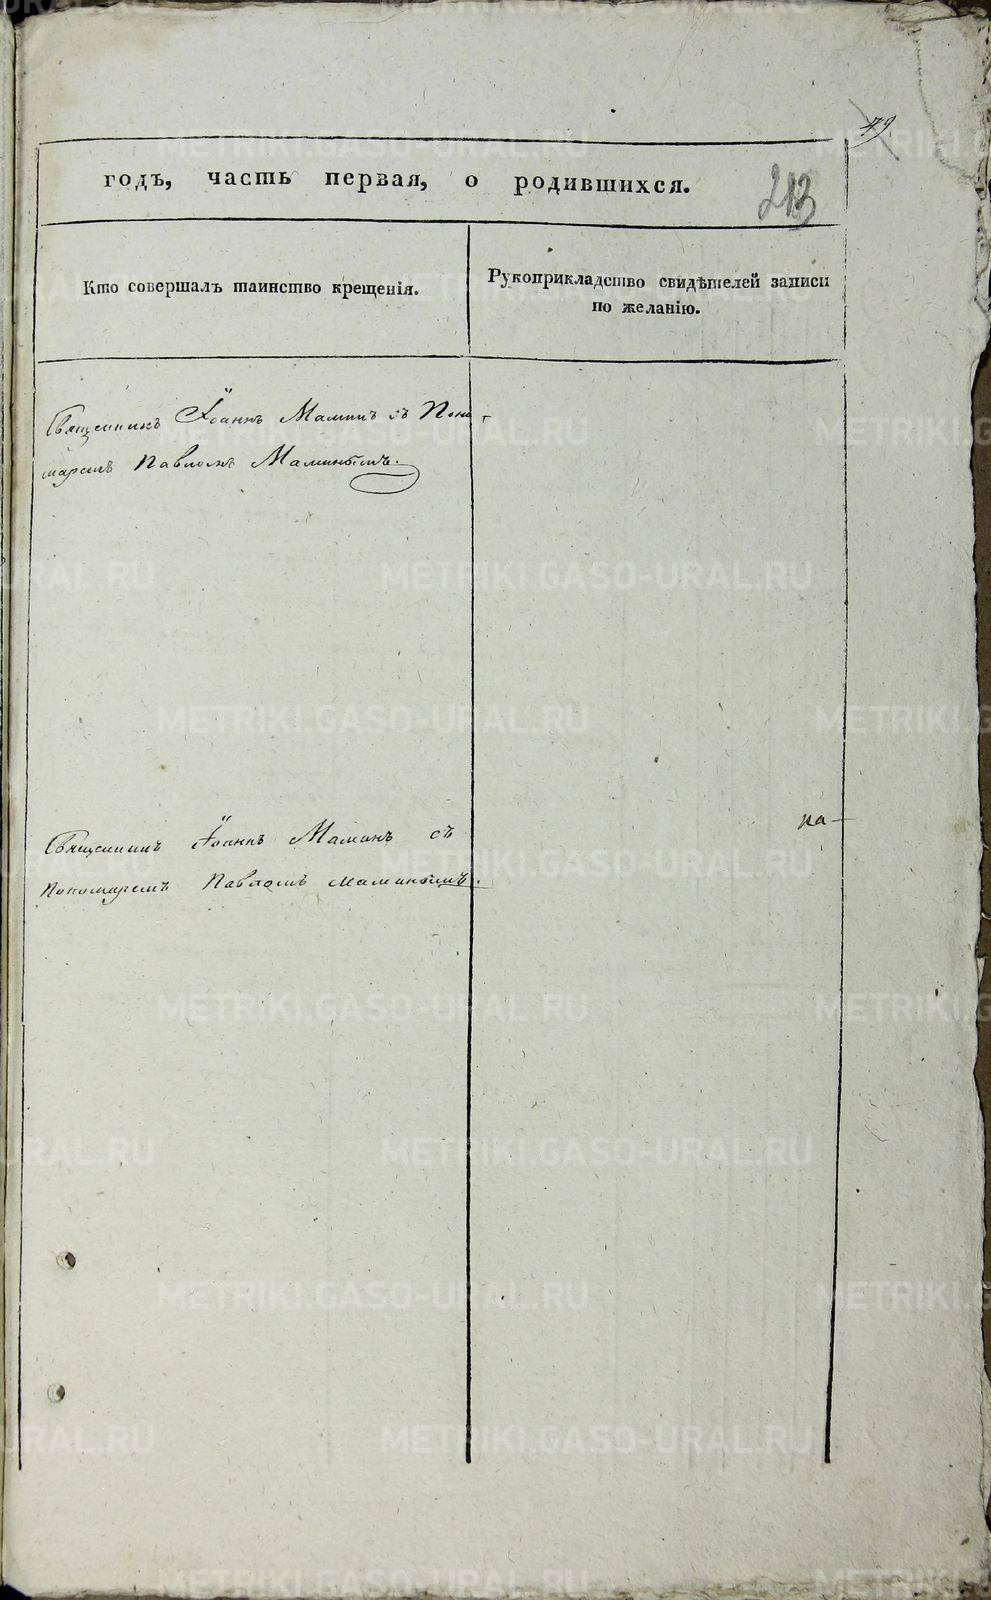 79
годъ, часть первая, о родившихся.
213
Кто совершалъ таинство крещенія.
Рукоприкладство свидѣтелей записи
по желанію.
Священникъ Іоаннъ Маминъ съ Поно-
маремъ Павломъ Маминымъ.
на-
Священникъ Іоаннъ Маминъ съ
Пономаремъ Павломъ Маминымъ.
METRIKI.GASO-URAL.RU